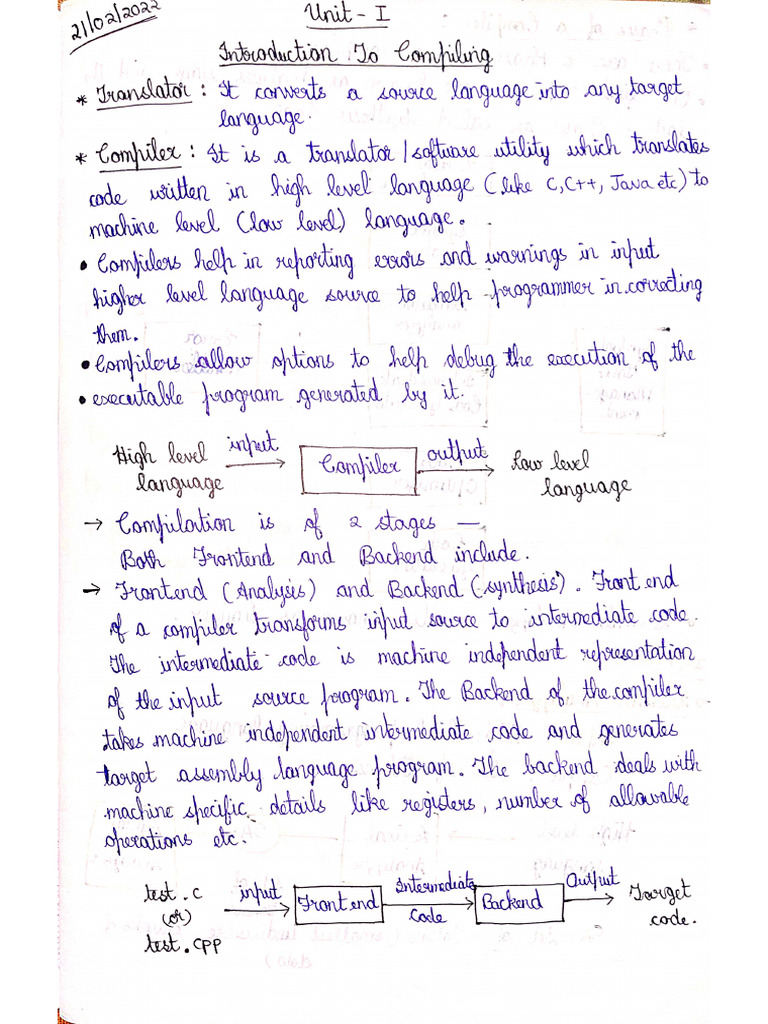 21/02/2022
Unit - I
Introduction To Compiling
* Translator : It converts a source language into any target
language.
* Compiler : It is a translator / software utility which translates
code written in high level language (like C, C++, Java etc) to
machine level (low level) language.
• Compilers help in reporting errors and warnings in input
higher level language source to help programmer in correcting
them.
• Compilers allow options to help debug the execution of the
• executable program generated by it.
High level language input Compiler output low level language
→ Compilation is of 2 stages —
Both Frontend and Backend include.
→ Frontend (Analysis) and Backend (synthesis). Front end
of a compiler transforms input source to intermediate code.
The intermediate code is machine independent representation
of the input source program. The Backend of the compiler
takes machine independent intermediate code and generates
target assembly language program. The backend deals with
machine specific details like registers, number of allowable
operations etc.
test.c (or) test.cpp input Front end Intermediate Code Backend Output Target code.